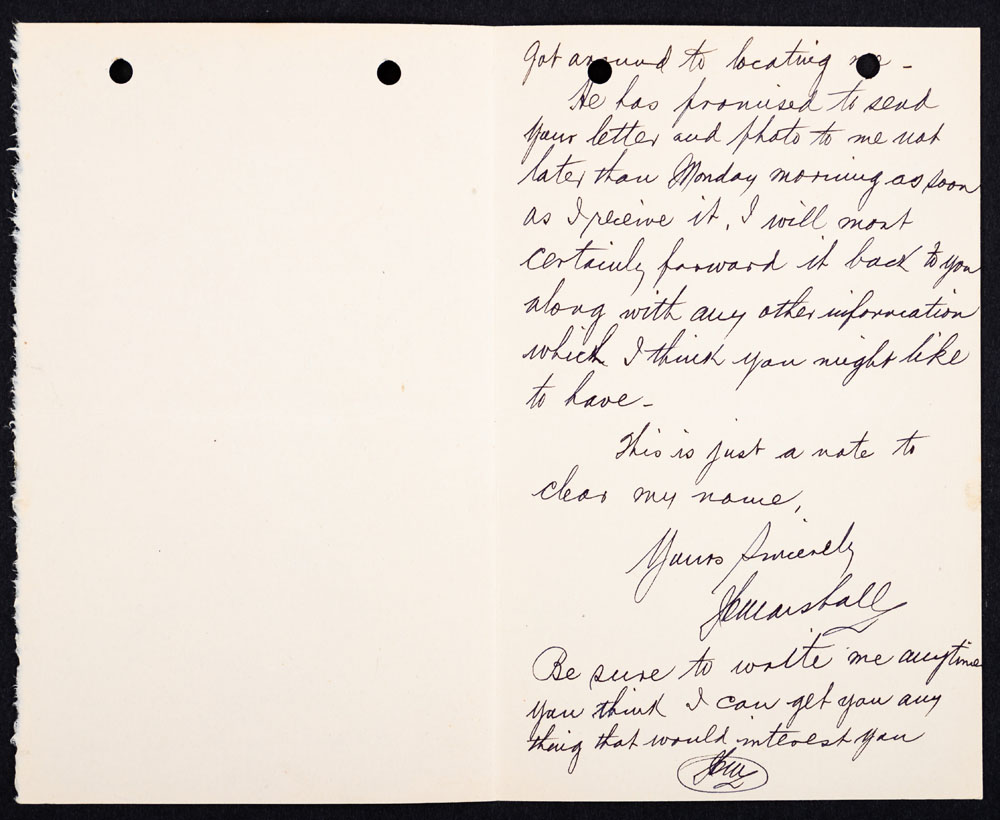 got around to locating me -
He has promised to send
your letter and photo to me not
later than Monday morning as soon
as I receive it, I will most
certainly forward it back to you
along with any other information
which I think you might like
to have -
This is just a note to
clear my name,
Yours Sincerely
Marshall
Be sure to write me anytime
you think I can get you any
thing that would interest you